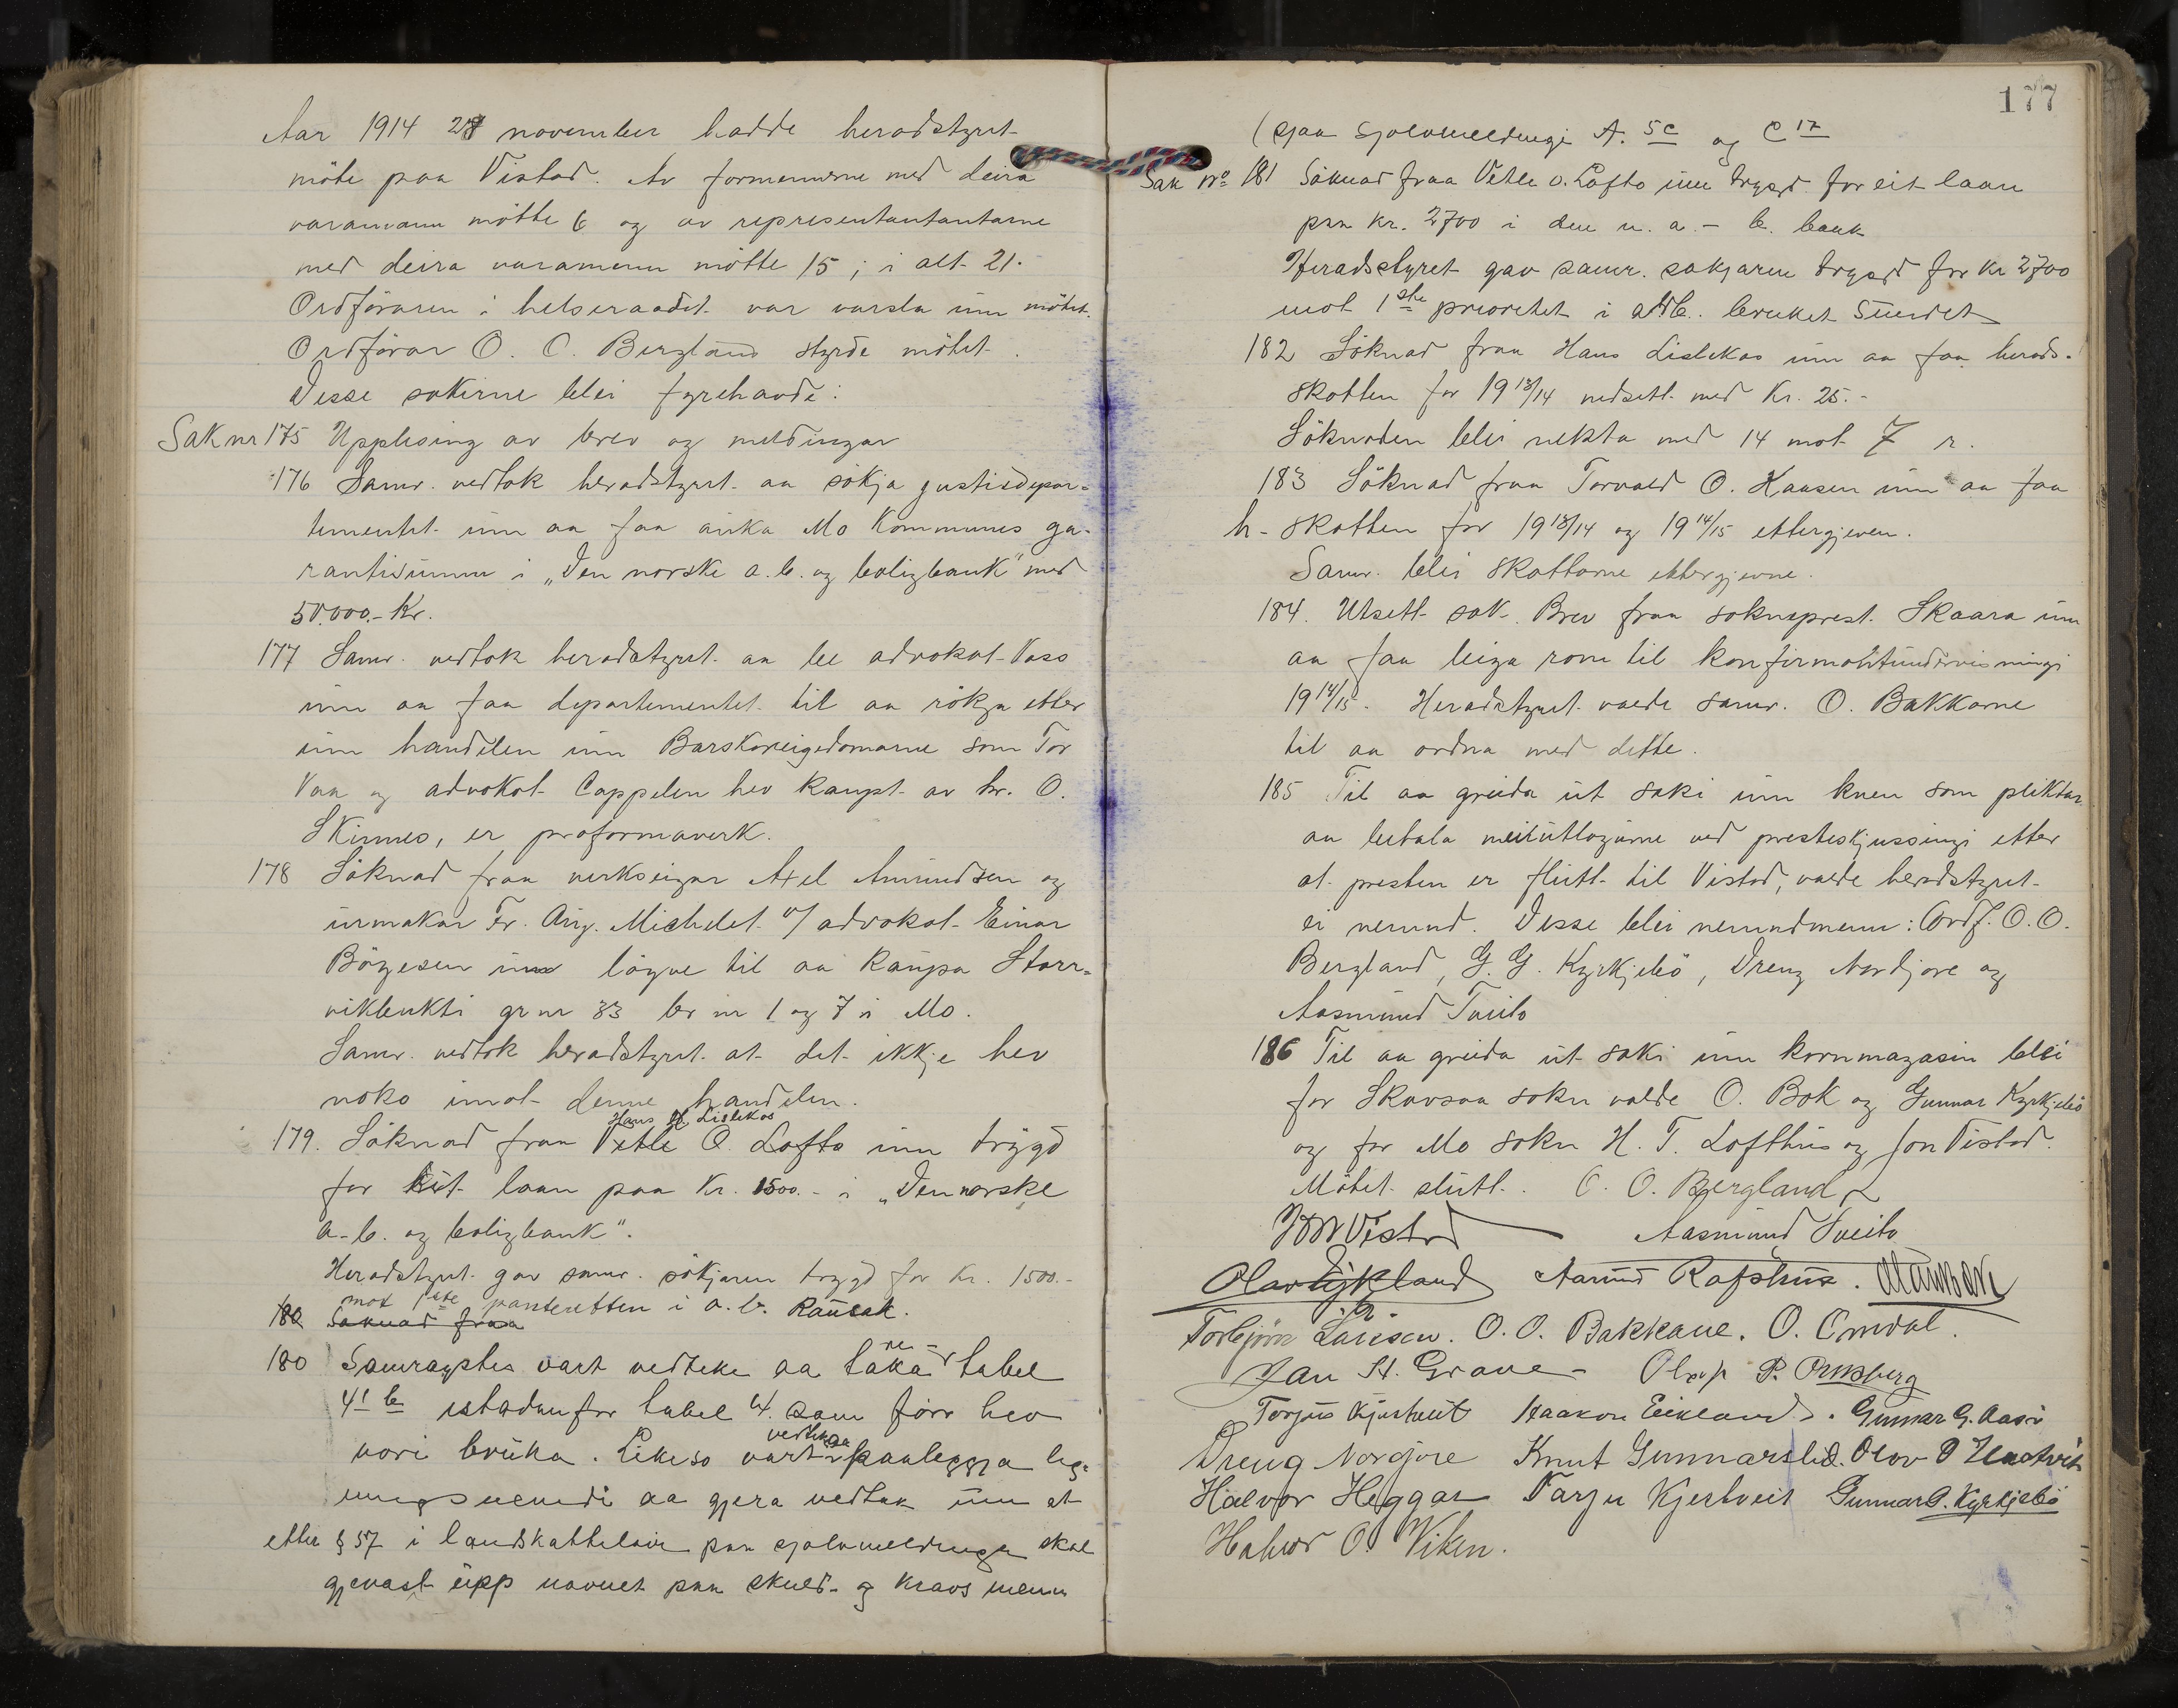 Aar 1914 28 november hadde heradstyret
möte paa Vistad. Av formennerne med deira
varamann mötte 6 og av representantantarne
med deira varamenn mötte 15; i alt 21.
Ordföraren i helseraadet var varsla um mötet.
Ordförar O. O. Bergland styrde mötet.
Desse sakirne blei fyrehavde:
Sak nr 175 Upplesing av brev og meldingar
176 Samr. vedtok heradstyret aa sökja justisdepar-
tementet um aa faa auka Mo Kommunes ga-
rantisumm i „Den norske a.b. og boligbank" med
50.000.- Kr.
177 Samr. vedtok heradstyret aa be advokat Vass
um aa faa departementet til aa rökja etter
um handelen um Barskoreigedomarne som Tor
Vaa og advokat Cappelen hev kaupt av hr. O.
Skinnes, er proformaverk.
178 Söknad fraa verkseigar Axel Amundsen og
urmakar Fr. Aug. Michelet v/ advokat Einar
Börgesen um lögve til aa kaupa Storr-
vikbukti gr nr 33 br nr 1 og 7 i Mo.
Samr. vedtok heradstyret at det ikkje hev
noko imot denne handelen.
Hans H. Lislekas
179. Söknad fraa Vetle O. Lofto um trygd
for eit laan paa Kr. 1500.- i „Den norske
a.-b. og boligbank".
Heradstyret gav samr. sökjaren trygd for Kr. 1500.-
mot 1ste panteretten i a. b. Rausak.
180 Söknad fraa
180 Samrøystes vart vedteke aa taka tabel
4 b istadenfor tabel 4. som förr hev
vori bruka. Likeso vart paaleggja lig-
ningsnemdi aa gjera vedtak um at
etter § 57 i landskattelovi paa sjølvmeldinga skal
gjevast upp navnet paa skuld- og kravsmenn
177
(sjaa sjolvmeldingi A. 5c og C 17
Sak No 181 Söknad fraa Vetle O. Lofto um trygd for eit laan
paa kr. 2700 i den n. a.- b. bank
Heradstyret gav samr. sokjaren trygd for kr 2700
mot 1ste prioretet i arb. bruket Sundet
182 Söknad fraa Hans Lislekas um aa faa herads-
skatten for 1913/14 nedsett med Kr. 25.-
Söknaden blei nekta med 14 mot 7 r.
183 Söknad fraa Torvald O. Hansen um aa faa
h- skatten for 1913/14 og 1914/15 ettergjeven.
Samr. blei skattarne ettergjevne.
184. Utsett sak. Brev fraa sokneprest Skaara um
aa faa leiga rom til konfirmantundervisningi
1914/15. Heradstyret valde samr. O. Bakkarne
til aa ordna med dette.
185 Til aa greida ut saki um kven som pliktar
aa betala meirutlogurne ved presteskjussingi etter
at presten er flutt til Vistad, valde heradstyret
ei nemnd. Desse blei nemndmenn: Ordf. O. O.
Bergland, G. G. Kyrkjebö, Dreng Nordjore og
Aasmund Tveito
186 Til aa greida ut saki um kornmagasin blei
for Skavsaa sokn valde O. Bok og Gunnar Kyrkjebö
og for Mo sokn H. T. Lofthus og Jon Vistad.
Mötet slutt. O. O. Bergland
Jon Vistad Aasmund Tveito
Olav Eykland Aanund Rafshus.
Torbjörn Larsen. O. O. Bakkane. O. Omdal.
Jan H. Grave Olav P. Ormsberg
Torjus Kjertveit Haakon Eikland. Gunnar G. Aasi
Dreng Nordjore Knut Gunnarslid. Olav O
Halvor Heggar Tarju Kjertveit Gunnar G. Kyrkjebö
Halvor O. Viken.